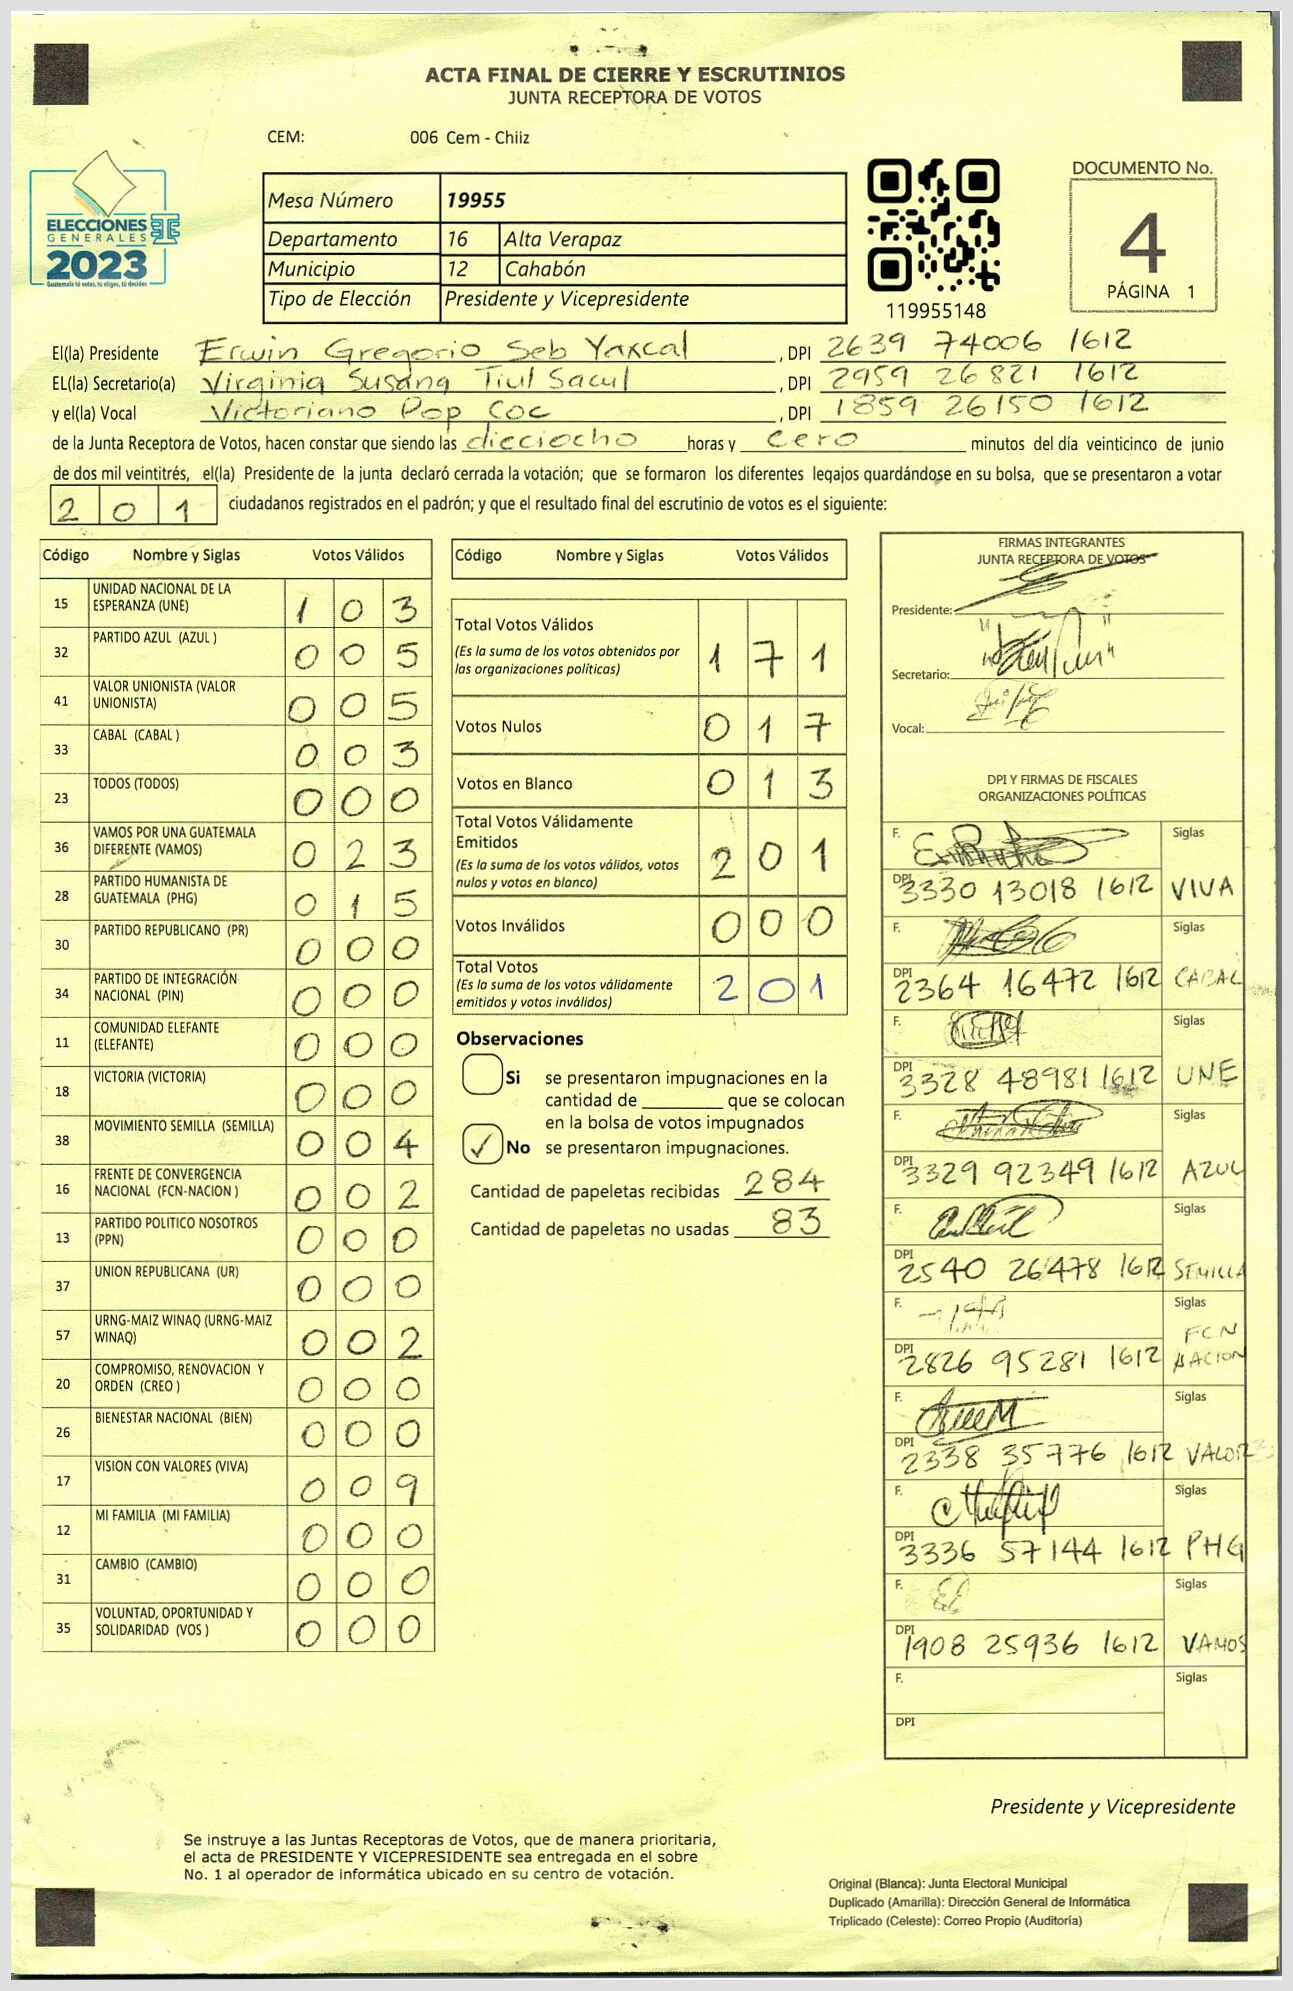 ACTA FINAL DE CIERRE Y ESCRUTINIOS
JUNTA RECEPTORA DE VOTOS
CEM: 006 Cem - Chiiz
ELECCIONES
GENERALES
2023
Guatemala tú votas, tú eliges, tú decides
Mesa Número 19955
Departamento 16 Alta Verapaz
Municipio 12 Cahabón
Tipo de Elección Presidente y Vicepresidente
119955148
DOCUMENTO No.
4
PÁGINA 1
El(la) Presidente Erwin Gregorio Seb Yaxcal , DPI 2639 74006 1612
EL(la) Secretario(a) Virginia Susana Tiul Sacul , DPI 2959 26821 1612
y el(la) Vocal Victoriano Pop Coc , DPI 1859 26150 1612
de la Junta Receptora de Votos, hacen constar que siendo las dieciocho horas y cero minutos del día veinticinco de junio
de dos mil veintitrés, el(la) Presidente de la junta declaró cerrada la votación; que se formaron los diferentes legajos guardándose en su bolsa, que se presentaron a votar
201 ciudadanos registrados en el padrón; y que el resultado final del escrutinio de votos es el siguiente:
Código Nombre y Siglas Votos Válidos
15 UNIDAD NACIONAL DE LA
ESPERANZA (UNE) 1 0 3
32 PARTIDO AZUL (AZUL ) 0 0 5
41 VALOR UNIONISTA (VALOR
UNIONISTA) 0 0 5
33 CABAL (CABAL ) 0 0 3
23 TODOS (TODOS) 0 0 0
36 VAMOS POR UNA GUATEMALA
DIFERENTE (VAMOS) 0 2 3
28 PARTIDO HUMANISTA DE
GUATEMALA (PHG) 0 1 5
30 PARTIDO REPUBLICANO (PR) 0 0 0
34 PARTIDO DE INTEGRACIÓN
NACIONAL (PIN) 0 0 0
11 COMUNIDAD ELEFANTE
(ELEFANTE) 0 0 0
18 VICTORIA (VICTORIA) 0 0 0
38 MOVIMIENTO SEMILLA (SEMILLA) 0 0 4
16 FRENTE DE CONVERGENCIA
NACIONAL (FCN-NACION ) 0 0 2
13 PARTIDO POLITICO NOSOTROS
(PPN) 0 0 0
37 UNION REPUBLICANA (UR) 0 0 0
57 URNG-MAIZ WINAQ (URNG-MAIZ
WINAQ) 0 0 2
20 COMPROMISO, RENOVACION Y
ORDEN (CREO ) 0 0 0
26 BIENESTAR NACIONAL (BIEN) 0 0 0
17 VISION CON VALORES (VIVA) 0 0 9
12 MI FAMILIA (MI FAMILIA) 0 0 0
31 CAMBIO (CAMBIO) 0 0 0
35 VOLUNTAD, OPORTUNIDAD Y
SOLIDARIDAD (VOS ) 0 0 0
Código Nombre y Siglas Votos Válidos
Total Votos Válidos
(Es la suma de los votos obtenidos por
las organizaciones políticas) 1 7 1
Votos Nulos 0 1 7
Votos en Blanco 0 1 3
Total Votos Válidamente
Emitidos
(Es la suma de los votos válidos, votos
nulos y votos en blanco) 2 0 1
Votos Inválidos 0 0 0
Total Votos
(Es la suma de los votos válidamente
emitidos y votos inválidos) 2 0 1
Observaciones
Si se presentaron impugnaciones en la
cantidad de ________ que se colocan
en la bolsa de votos impugnados
✓ No se presentaron impugnaciones.
Cantidad de papeletas recibidas 284
Cantidad de papeletas no usadas 83
FIRMAS INTEGRANTES
JUNTA RECEPTORA DE VOTOS
Presidente:
Secretario:
Vocal:
DPI Y FIRMAS DE FISCALES
ORGANIZACIONES POLÍTICAS
F. Siglas
DPI 3330 13018 1612 VIVA
F. Siglas
DPI 2364 16472 1612 CABAL
F. Siglas
DPI 3328 48981 1612 UNE
F. Siglas
DPI 3329 92349 1612 AZUL
F. Siglas
DPI 2540 26478 1612 SEMILLA
F. Siglas
FCN
DPI 2826 95281 1612 NACION
F. Siglas
DPI 2338 35776 1612 VALOR
F. Siglas
DPI 3336 57144 1612 PHG
F. Siglas
DPI 1908 25936 1612 VAMOS
F. Siglas
DPI
Presidente y Vicepresidente
Se instruye a las Juntas Receptoras de Votos, que de manera prioritaria,
el acta de PRESIDENTE Y VICEPRESIDENTE sea entregada en el sobre
No. 1 al operador de informática ubicado en su centro de votación.
Original (Blanca): Junta Electoral Municipal
Duplicado (Amarilla): Dirección General de Informática
Triplicado (Celeste): Correo Propio (Auditoría)